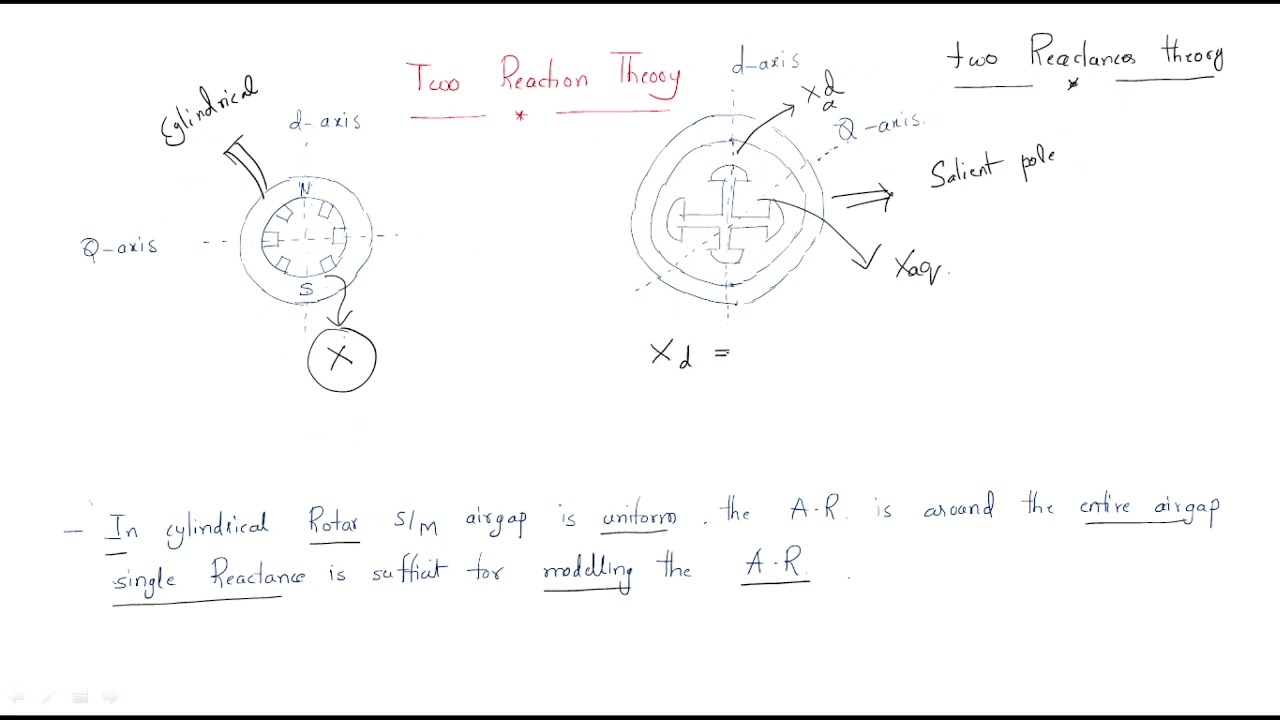 Two Reaction Theory
two Reactances theory
Cylindrical
d-axis
d-axis
Xad
Q-axis.
N
Salient pole
Q-axis
Xaq.
S
X
Xd =
- In cylindrical Rotar S/M airgap is uniform. the A.R. is around the entire airgap
single Reactance is sufficit for modelling the A.R.